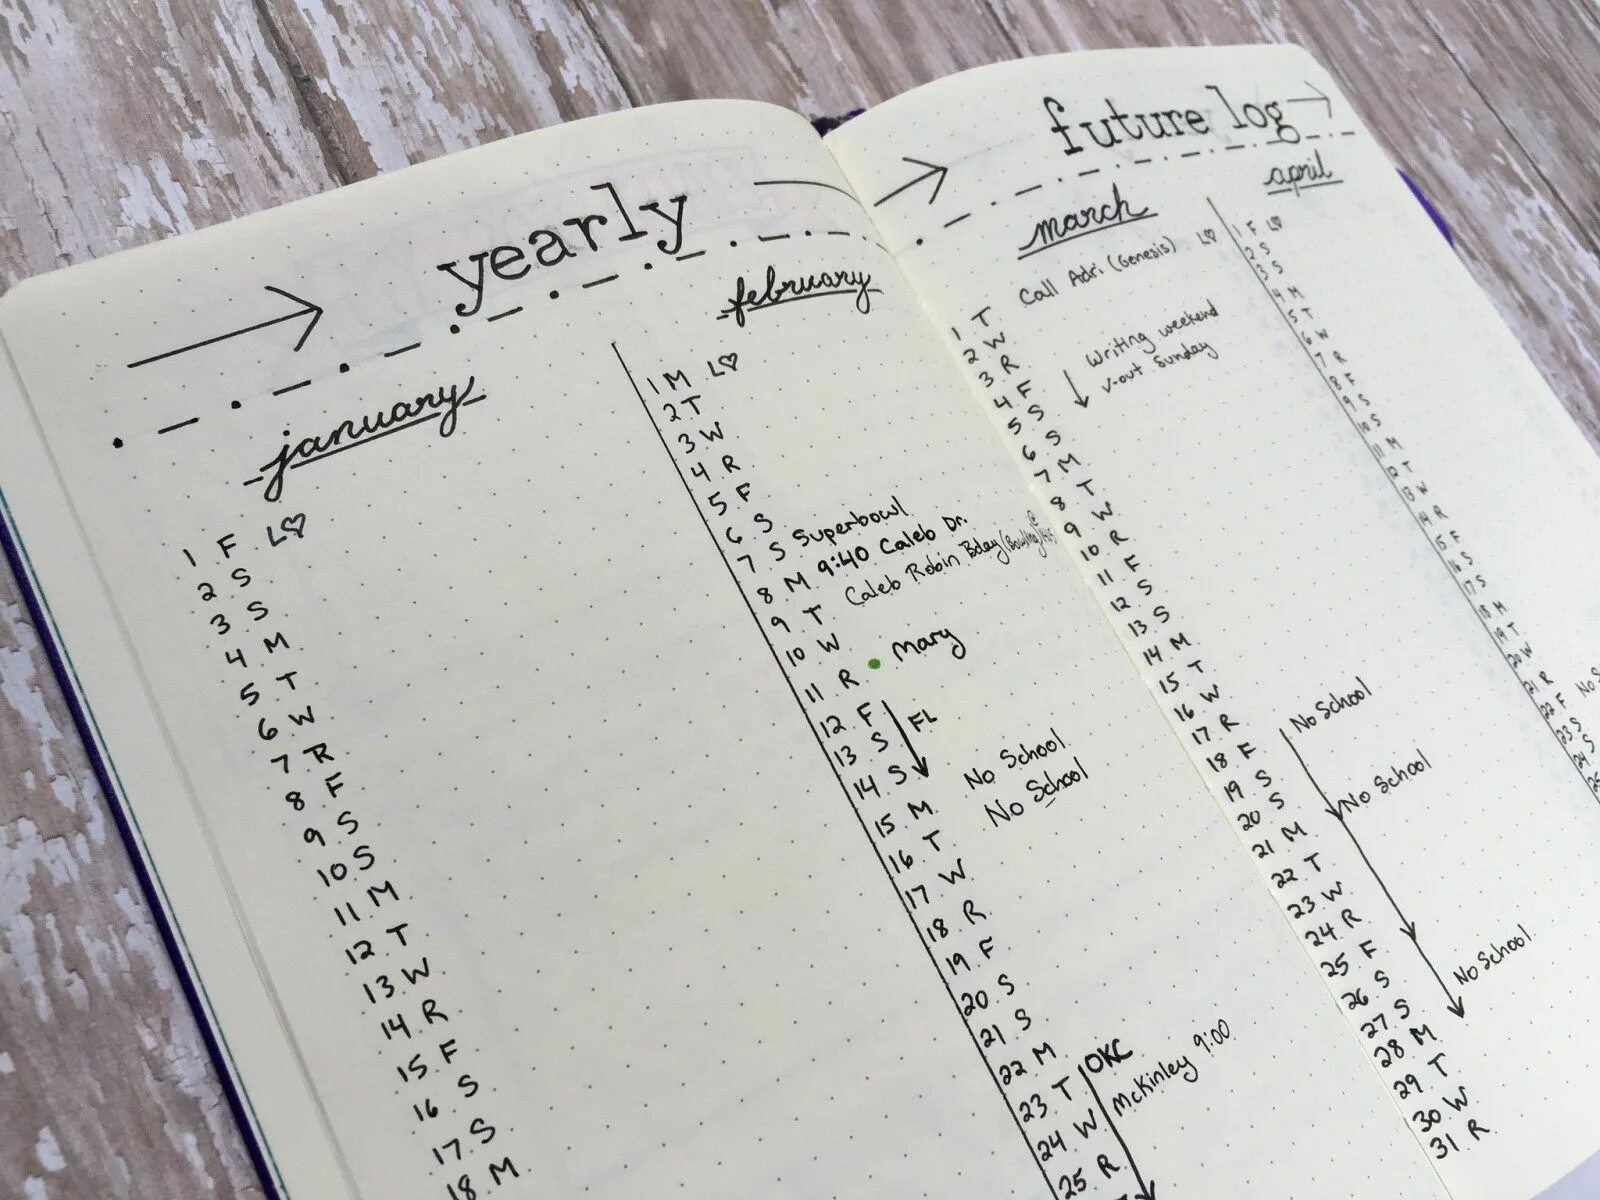 yearly
january
1 F L♡
2 S
3 S
4 M
5 T
6 W
7 R
8 F
9 S
10 S
11 M
12 T
13 W
14 R
15 F
16 S
17 S
18 M
february
1 M L♡
2 T
3 W
4 R
5 F
6 S
7 S Superbowl
8 M 9:40 Caleb Dr.
9 T Caleb Robin Bday (Bowling)
10 W
11 R • Mary
12 F FL
13 S
14 S
15 M No School
16 T No School
17 W
18 R
19 F
20 S
21 S
22 M
23 T OKC
24 W McKinley 9:00
25 R
future log
march
1 T Call Adri (Genesis) L♡
2 W
3 R
4 F Writing weekend
5 S v-out Sunday
6 S
7 M
8 T
9 W
10 R
11 F
12 S
13 S
14 M
15 T
16 W
17 R
18 F No School
19 S
20 S
21 M No School
22 T
23 W
24 R
25 F
26 S
27 S
28 M No School
29 T
30 W
31 R
april
1 F L♡
2 S
3 S
4 M
5 T
6 W
7 R
8 F
9 S
10 S
11 M
12 T
13 W
14 R
15 F
16 S
17 S
18 M
19 T
20 W
21 R
22 F No
23 S
24 S